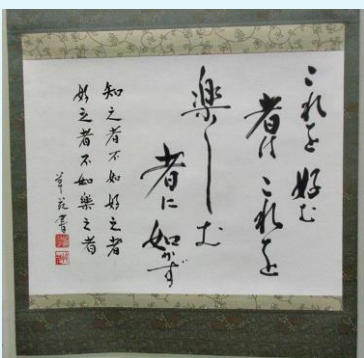 これを好む
者はこれを
楽しむ
者に如かず
知之者不如好之者
好之者不如樂之者